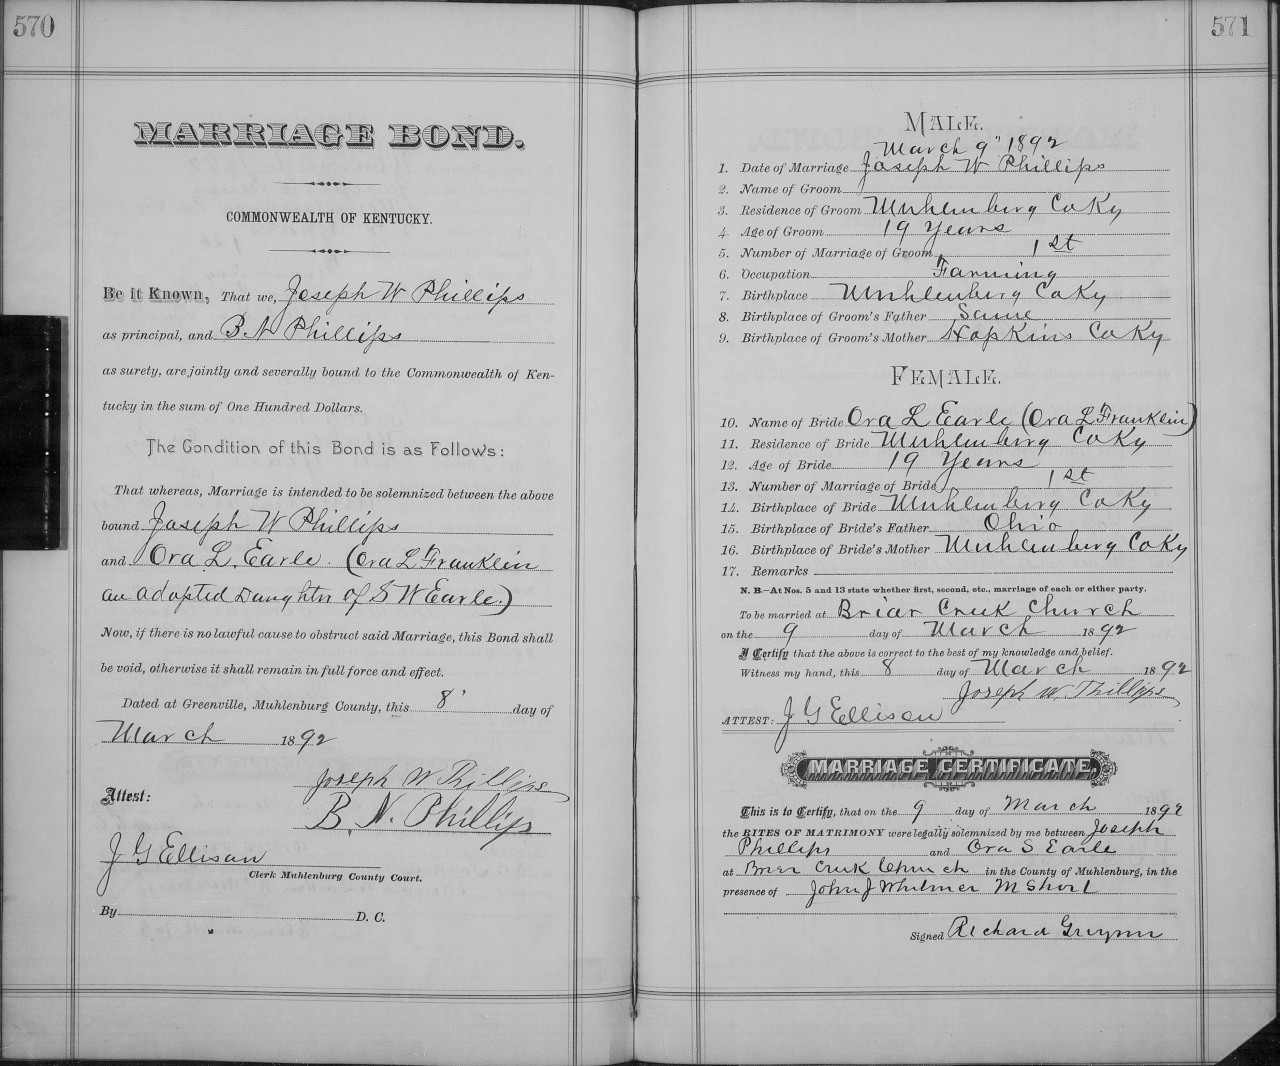 570
MARRIAGE BOND.
COMMONWEALTH OF KENTUCKY.
Be it Known, That we, Joseph W Phillips
as principal, and B. N Phillips
as surety, are jointly and severally bound to the Commonwealth of Ken-
tucky in the sum of One Hundred Dollars.
The Condition of this Bond is as Follows:
That whereas, Marriage is intended to be solemnized between the above
bound Joseph W Phillips
and Ora L. Earle. (Ora L Franklin
an adopted Daughter of S W Earle.)
Now, if there is no lawful cause to obstruct said Marriage, this Bond shall
be void, otherwise it shall remain in full force and effect.
Dated at Greenville, Muhlenburg County, this 8' day of
March 1892
Joseph W. Phillips
Attest:
B. N. Phillips
J G Ellison
Clerk Muhlenburg County Court.
By D. C.
571
MALE.
March 9" 1892
1. Date of Marriage Joseph W Phillips
2. Name of Groom
3. Residence of Groom Muhlenberg Co Ky
4. Age of Groom 19 Years
5. Number of Marriage of Groom 1st
6. Occupation Farming
7. Birthplace Muhlenberg Co Ky
8. Birthplace of Groom's Father Same
9. Birthplace of Groom's Mother Hopkins Co Ky
FEMALE.
10. Name of Bride Ora L Earle (Ora L Franklin)
11. Residence of Bride Muhlenberg Co Ky
12. Age of Bride 19 Years
13. Number of Marriage of Bride 1st
14. Birthplace of Bride Muhlenberg Co Ky
15. Birthplace of Bride's Father Ohio
16. Birthplace of Bride's Mother Muhlenberg Co Ky
17. Remarks
N. B.—At Nos. 5 and 13 state whether first, second, etc., marriage of each or either party.
To be married at Briar Creek Church
on the 9 day of March 1892
I Certify that the above is correct to the best of my knowledge and belief.
Witness my hand, this 8 day of March 1892
Joseph W. Phillips
ATTEST: J G Ellison
MARRIAGE CERTIFICATE.
This is to Certify, that on the 9 day of March 1892
the RITES OF MATRIMONY were legally solemnized by me between Joseph
Phillips and Ora S Earle
at Brier Creek Church in the County of Muhlenburg, in the
presence of John J Whitmer M Short
Signed Richard Gwynn